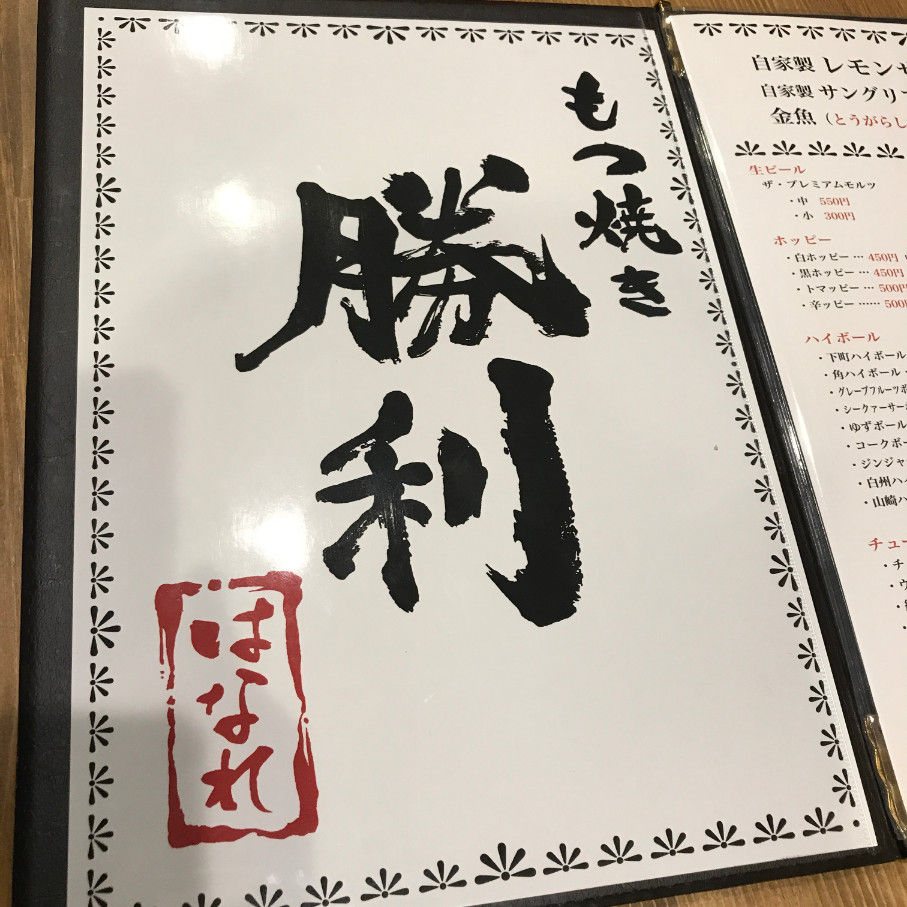 もつ焼き
勝利
はなれ
自家製 レモンサ
自家製 サングリア
金魚（とうがらし
生ビール
ザ・プレミアムモルツ
・中 550円
・小 300円
ホッピー
・白ホッピー … 450円
・黒ホッピー … 450円
・トマッピー … 500円
・辛ッピー …… 500円
ハイボール
・下町ハイボール
・角ハイボール
・グレープフルーツボ
・シークァーサーボ
・ゆずボール
・コークボー
・ジンジャ
・白州ハイ
・山崎ハ
チュー
・チ
・ウ